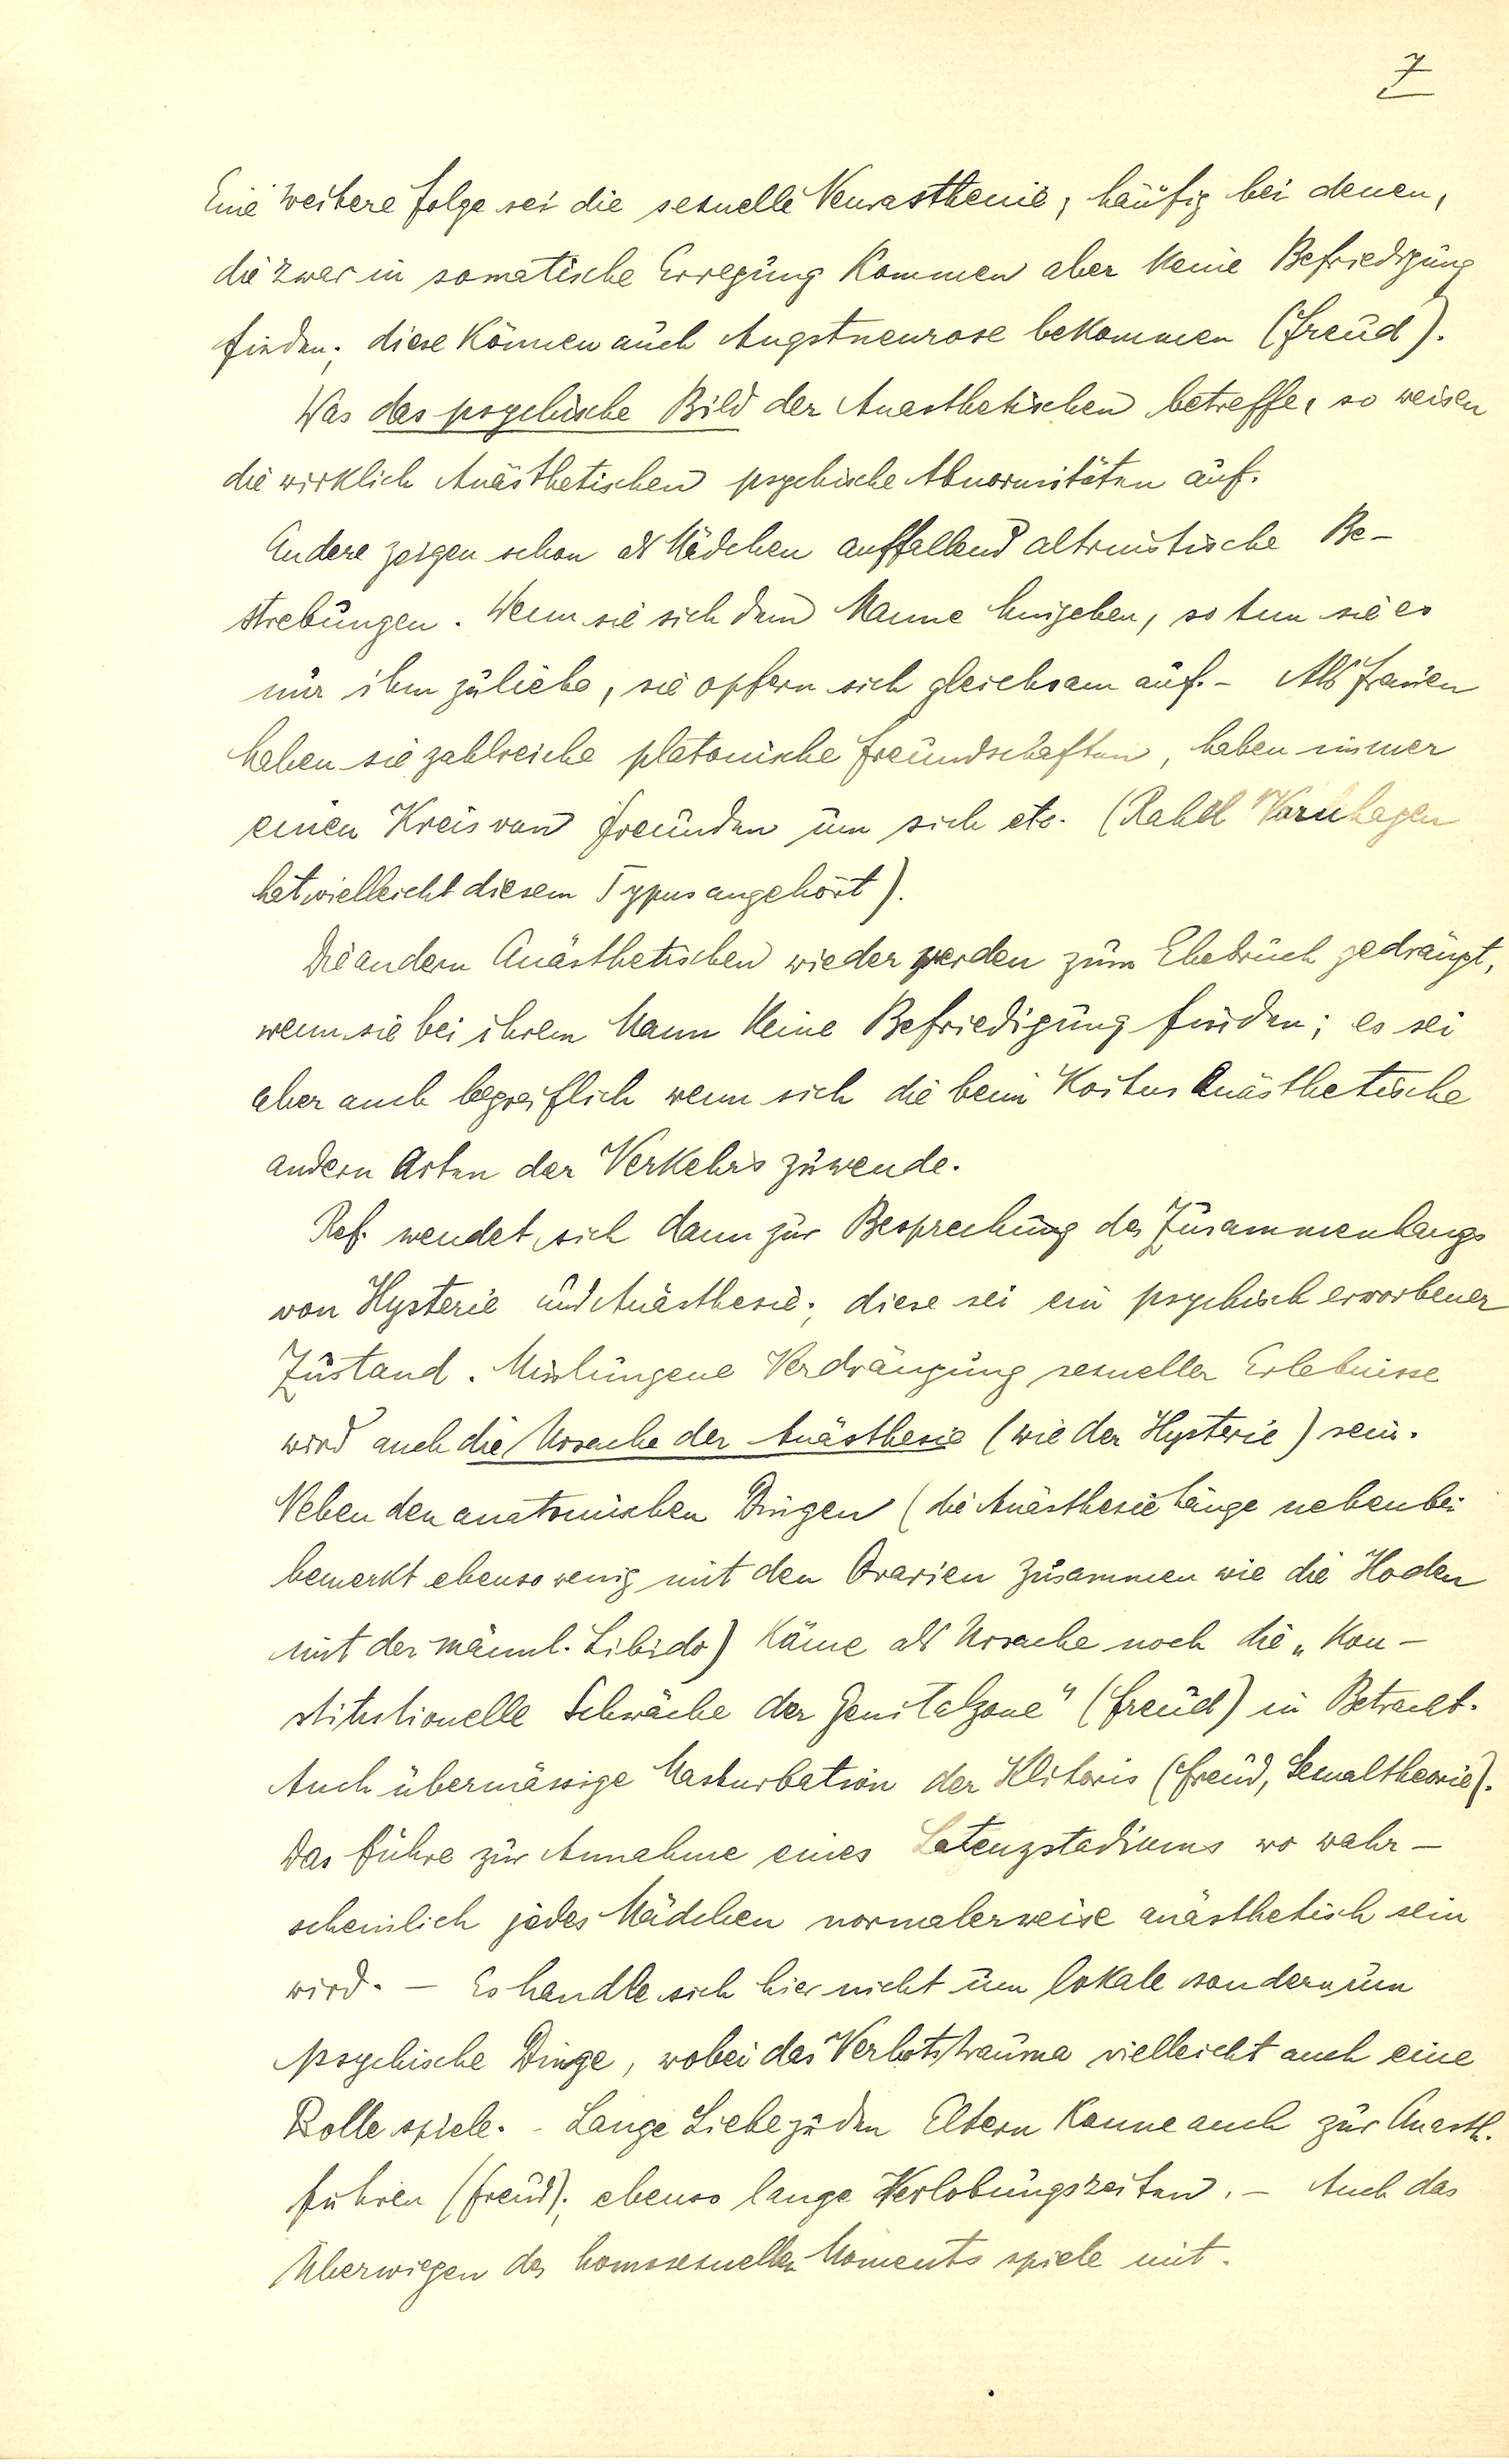 7
Eine weitere Folge sei die sexuelle Neurasthenie, häufig bei denen,
die zwar in somatische Erregung kommen aber keine Befriedigung
finden; diese können auch Angstneurose bekommen (Freud).
Was das psychische Bild der Anästhetischen betreffe, so weisen
die wirklich Anästhetischen psychische Abnormitäten auf.
Andere zeigen schon als Mädchen auffallend altruistische Be-
strebungen. Wenn sie sich dem Manne hingeben, so tun sie es
nur ihm zuliebe, sie opfern sich gleichsam auf. - Als Frauen
haben sie zahlreiche platonische Freundschaften, haben immer
einen Kreis von Freunden um sich etc. (Rahel Varnhagen
hat vielleicht diesem Typus angehört).
Die andern Anästhetischen wieder werden zum Ehebruch gedrängt,
wenn sie bei ihrem Mann keine Befriedigung finden; es sei
aber auch begreiflich wenn sich die beim Koitus Anästhetische
andern Arten des Verkehrs zuwende.
Ref. wendet sich dann zur Besprechung des Zusammenhangs
von Hysterie und Anästhesie; diese sei ein psychisch erworbener
Zustand. Misslungene Verdrängung sexueller Erlebnisse
wird auch die Ursache der Anästhesie (wie der Hysterie) sein.
Neben den anatomischen Dingen (die Anästhesie hänge nebenbei
bemerkt ebensowenig mit den Ovarien zusammen wie die Hoden
mit der männl. Libido) käme als Ursache noch die „Kon-
stitutionelle Schwäche der Genitalzone" (Freud) in Betracht.
Auch übermässige Masturbation der Klitoris (Freud, Sexualtheorie).
Das führe zur Annahme eines Latenzstadiums wo wahr-
scheinlich jedes Mädchen normalerweise anästhetisch sein
wird. - Es handle sich hier nicht um lokale sondern um
psychische Dinge, wobei das Verbotstrauma vielleicht auch eine
Rolle spiele. - Lange Liebe zu den Eltern kann auch zur Anästh.
führen (Freud); ebenso lange Verlobungszeiten. - Auch das
Überwiegen des homosexuellen Moments spiele mit.